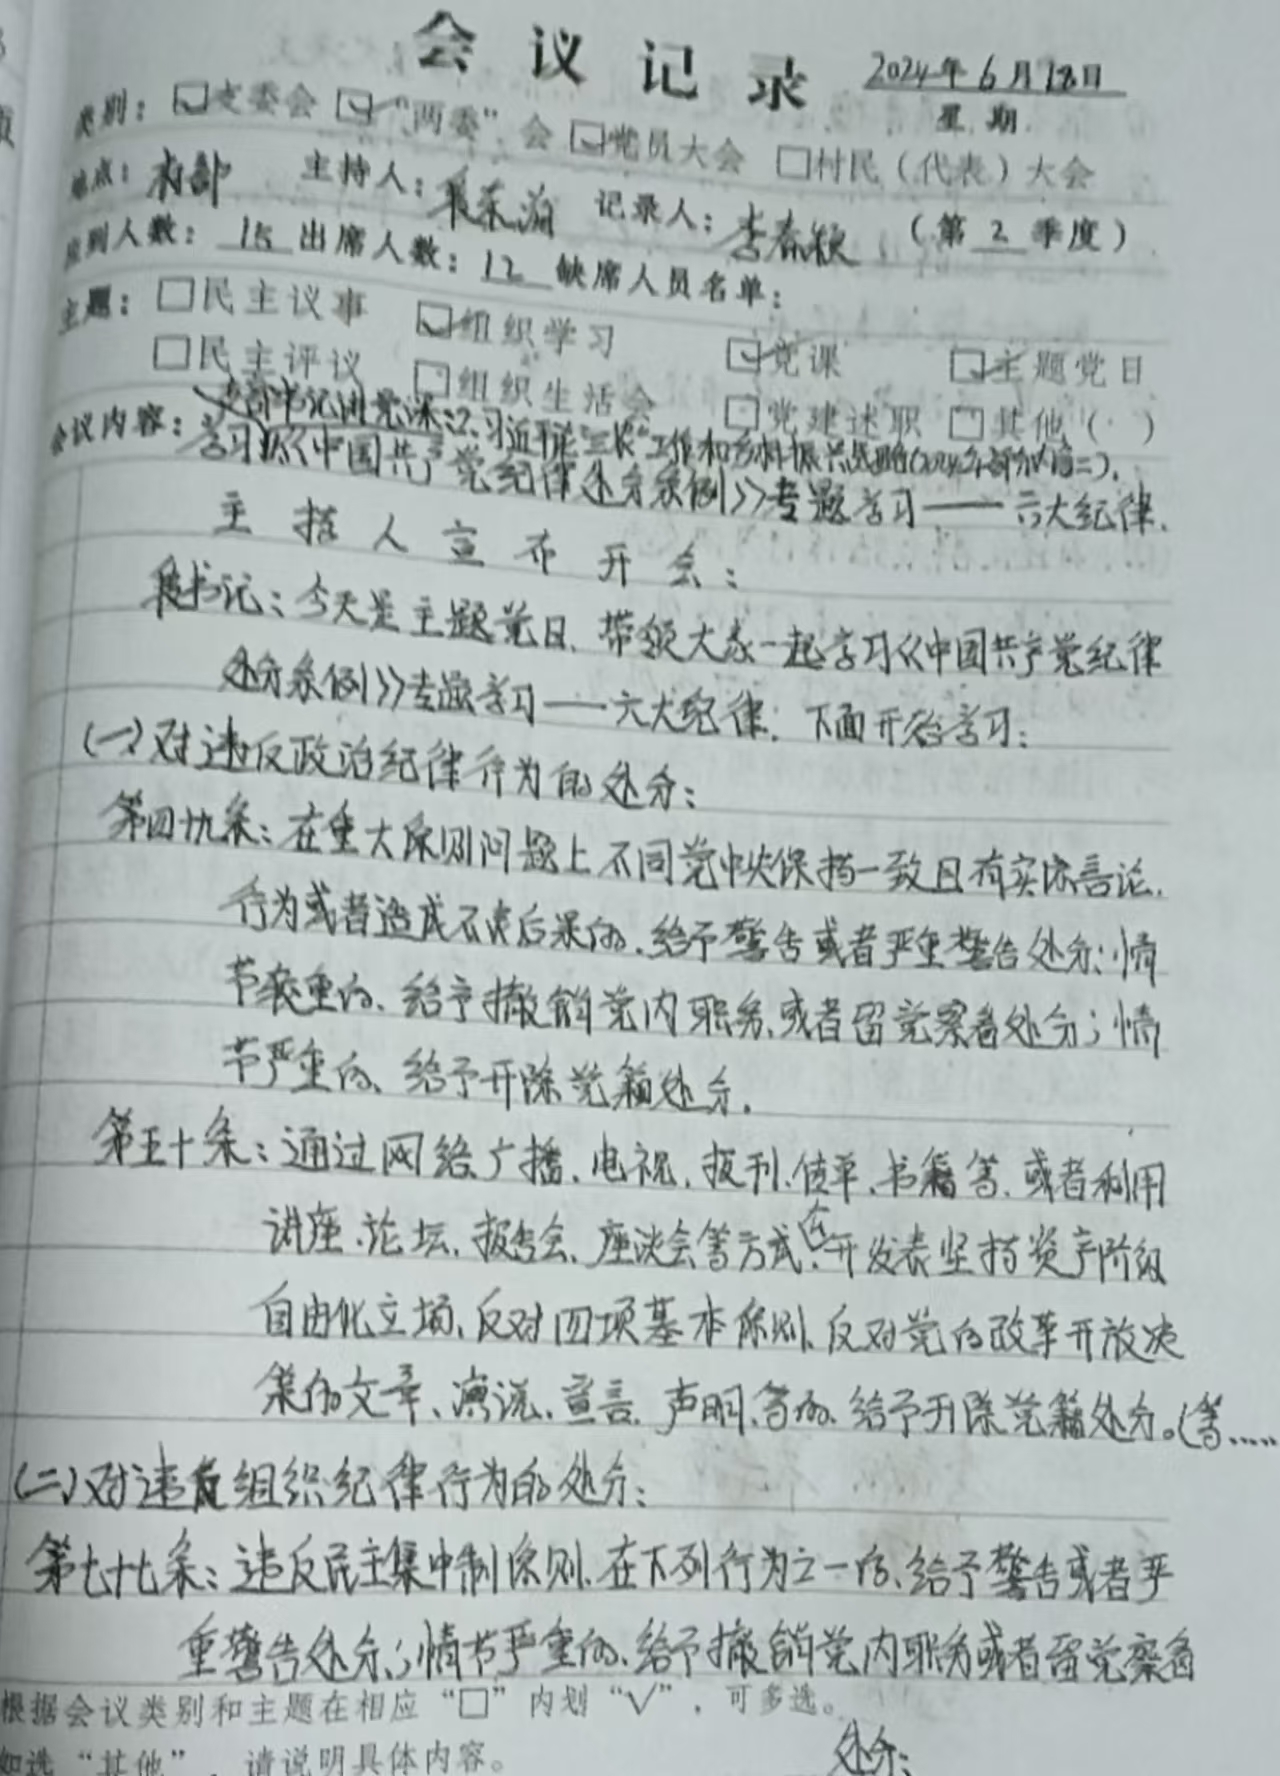 会议记录
2024年6月18日
星期
类别：☑支委会 ☑“两委”会 ☑党员大会 □村民（代表）大会
地点：村部 主持人： 记录人：李春颖 （第2季度）
应到人数：15 出席人数：12 缺席人员名单：
主题：□民主议事 ☑组织学习 ☑党课 ☑主题党日
□民主评议 □组织生活会 □党建述职 □其他（ ）
支部书记讲党课：2.习近平论“三农”工作和乡村振兴战略(2024年部分内容二).
会议内容：学习《中国共产党纪律处分条例》专题学习——六大纪律.
主持人宣布开会：
段书记：今天是主题党日、带领大家一起学习《中国共产党纪律
处分条例》专题学习——六大纪律.下面开始学习：
(一)对违反政治纪律行为的处分：
第四十九条：在重大原则问题上不同党中央保持一致且有实际言论.
行为或者造成不良后果的、给予警告或者严重警告处分；情
节较重的、给予撤销党内职务、或者留党察看处分；情
节严重的、给予开除党籍处分.
第五十条：通过网络广播、电视、报刊、传单、书籍等、或者利用
讲座、论坛、报告会、座谈会等方式、公开发表坚持资产阶级
自由化立场、反对四项基本原则、反对党的改革开放决
策的文章、演说、宣言、声明、等的、给予开除党籍处分。(等……
(二)对违反组织纪律行为的处分：
第七十七条：违反民主集中制原则、在下列行为之一的、给予警告或者严
重警告处分；情节严重的、给予撤销党内职务或者留党察看
根据会议类别和主题在相应“□”内划“√”，可多选。
处分；
如选“其他”，请说明具体内容。